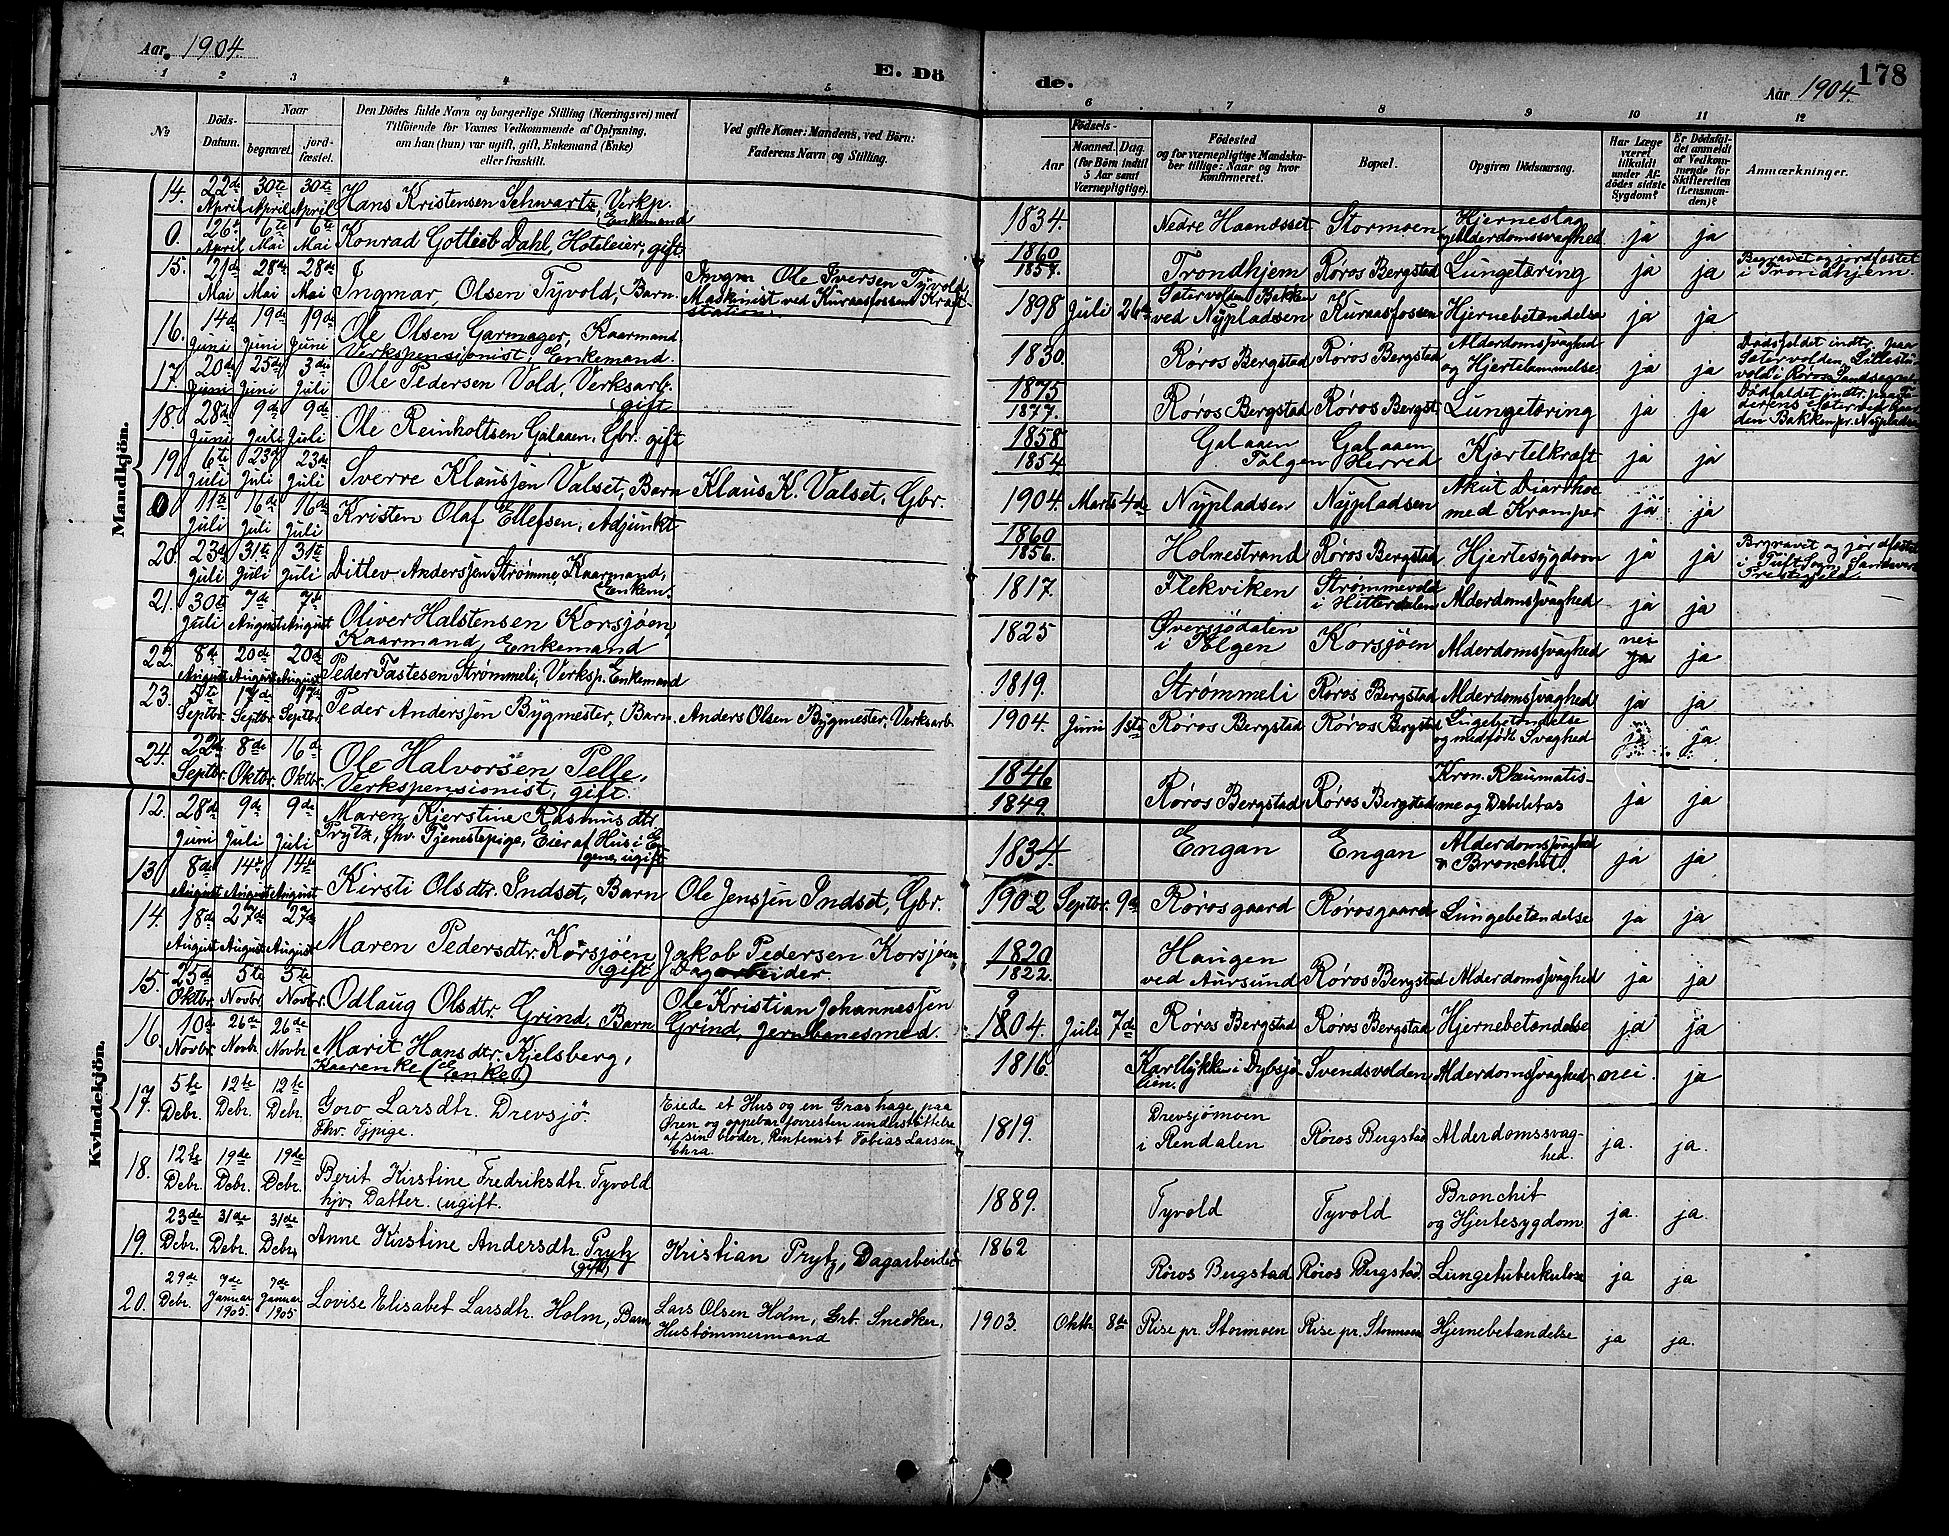 Aar 1904.
E. Dö
de.
Aar 1904.
178
1 2 3 4 5 6 7 8 9 10 11 12
No
Döds-Datum.
Naar
begravet.
jord-fæstet.
Den Dödes fulde Navn og borgerlige Stilling (Næringsvei) med
Tilföiende for Voxnes Vedkommende af Oplysning,
om han (hun) var ugift, gift, Enkemand (Enke)
eller fraskilt.
Ved gifte Koner: Mandens, ved Börn:
Faderens Navn og Stilling.
Födsels-
Aar
Maaned. Dag.
(for Börn indtil
5 Aar samt
Værnepligtige).
Födested
og for værnepligtige Mandska-
ber tillige: Naar og hvor
konfirmeret.
Bopæl.
Opgiven Dödsaarsag.
Har Læge
været
tilkaldt
under Af-
dödes sidste
Sygdom?
Er Dödsfal-
det anmeldt
af Vedkom-
mende for
Skifteretten
(Lensman-
den)?
Anmærkninger.
Mandkjön.
14. 22de April 30te April 30te April Hans Kristensen Schwartz, Verkp. Enkemand 1834. Nedre Haandset Stormoen Hjerneslag og Alderdomssvaghed ja ja
0. 26de April 6te Mai 6te Mai Konrad Gottlieb Dahl, Hoteleier, gift 1860 1857. Trondhjem Röros Bergstad Lungetæring ja ja Begravet og jordfæstet i Trondhjem.
15. 21de Mai 28de Mai 28de Mai Ingmar Olsen Tyvold, Barn Ingm Ole Iversen Tyvold, Maskinist ved Kuraasfossens Kraftstation. 1898 Juli 26de Sætervolden Bakken ved Nypladsen Kuraasfossen Hjernebetændelse ja ja
16. 14de Juni 19de Juni 19de Juni Ole Olsen Garmager, Kaarmand Verkspensionist, Enkemand. 1830. Röros Bergstad Röros Bergstad Alderdomssvaghed og Hjertelammelse ja ja Dödsfaldet indtr. paa Sætervolden
17. 20de Juni 25de Juni 3die Juli Ole Pedersen Vold, Verksarb. gift 1875 1877. Röros Bergstad Röros Bergst. Lungetæring ja ja Dödsfaldet indtr. paa
18. 28de Juni 9de Juli 9de Juli Ole Reinholtsen Galaaen, Gbr. gift 1858 1854 Galaaen Tolgen Galaaen Herred Kjertelkræft ja ja
19. 6te Juli 23de Juli 23de Juli Sverre Klaussen Valset, Barn Klaus K. Valset, Gbr. 1904. Marts 4de Nypladsen Nypladsen Akut Diarrhoe med Kramper ja ja
0 11te Juli 16de Juli 16de Juli Kristen Olaf Ellefsen, Adjunkt 1860 1856. Holmestrand Röros Bergstad Hjertesygdom ja ja Begravet og jordfæstet i Tuft Sogn, Sandsvær Prestegjeld
20. 23de Juli 31te Juli 31te Juli Ditlev Anderssen Strømme, Kaarmand, Enkem. 1817. Flekviken Strømmevold i Hitterdalen Alderdomssvaghed ja ja
21. 30te Juli 7de August 7de August Oliver Halstensen Korsjøen, Kaarmand, Enkemand 1825 Øversjödalen i Tolgen Korsjøen Alderdomssvaghed nei ja ja
22. 8de August 20de August 20de August Peder Fastesen Strømmeli, Verksp. Enkemand 1819. Strømmeli Röros Bergstad Alderdomssvaghed ja ja
23. 5te Septbr. 17de Septbr. 17de Septbr. Peder Anderssen Bygmester, Barn. Anders Olsen Bygmester, Verksarb. 1904. Juni 1ste Röros Bergstad Röros Bergstad Lungebetændelse og medfödt Svaghed ja ja
24. 22de Septbr. 8de Oktbr. 16de Oktbr. Ole Halvorsen Pelle, Verkspensionist, gift. 1846 1849. Röros Bergstad Röros Bergstad Kron. Rheumatisme og Debilitas ja ja
Kvindekjön.
12. 28de Juni 9de Juli 9de Juli Maren Kjerstine Rasmusdtr. Prytz, fhv. Tjenestepige, Eier af Hus i Engene, ugift 1834. Engan Engan Alderdomssvaghed & Bronchit. ja ja
13. 8de August 14de August 14de August Kirsti Olsdtr. Indset, Barn Ole Jenssen Indset, Gbr. 1902 Septbr. 9de Rörosgaard Rörosgaard Lungebetændelse ja ja
14. 18de August 27de August 27de August Maren Pedersdtr. Korsjøen gift Jakob Pedersen Korsjøen, Dagarbeider 1820 1822. Haugen ved Aursund Röros Bergstad Alderdomssvaghed ja ja
15. 25de Oktbr. 5te Novbr. 5te Novbr. Odlaug Olsdtr. Grind, Barn Ole Kristian Johannessen Grind, Jernbanesmed. 9 1804. Juli 7de Röros Bergstad Röros Bergstad Hjernebetændelse ja ja
16. 10de Novbr. 26de Novbr. 26de Novbr. Marit Hansdtr. Kjelsberg, Kaarenke (Enke) 1816. Karllykken i Dybsjölien. Svendsvolden Alderdomssvaghed nei. ja
17. 5te Debr. 12te Debr. 12te Debr. Goro Larsdtr. Drevsjö. Fhv. Tjpige. Eiede et Hus og en Græshage paa Øren og oppebar forresten understöttelse af sin broder, Rentenist Tobias Larsen, Chra. 1819. Drevsjömoen i Rendalen Röros Bergstad Alderdomssvaghed. ja. ja.
18. 12te Debr. 19de Debr. 19de Debr. Berit Kirstine Fredriksdtr. Tyvold hjv. Datter. (ugift. 1889. Tyvold Tyvold Bronchit og Hjertesygdom ja. ja.
19. 23de Debr. 31de Debr. 31de Debr. Anne Kirstine Andersdtr. Prytz (gift) Kristian Prytz, Dagarbeider 1862 Röros Bergstad Röros Bergstad. Lungetuberkulose ja ja
20. 29de Debr. 7de Januar 1905. 7de Januar 1905 Lovise Elisabet Larsdtr. Holm, Barn Lars Olsen Holm, Grb. Snedker, Hustømmermand 1903. Oktb. 8de Rise pr. Stormoen Rise pr. Stormoen Hjernebetændelse ja ja.